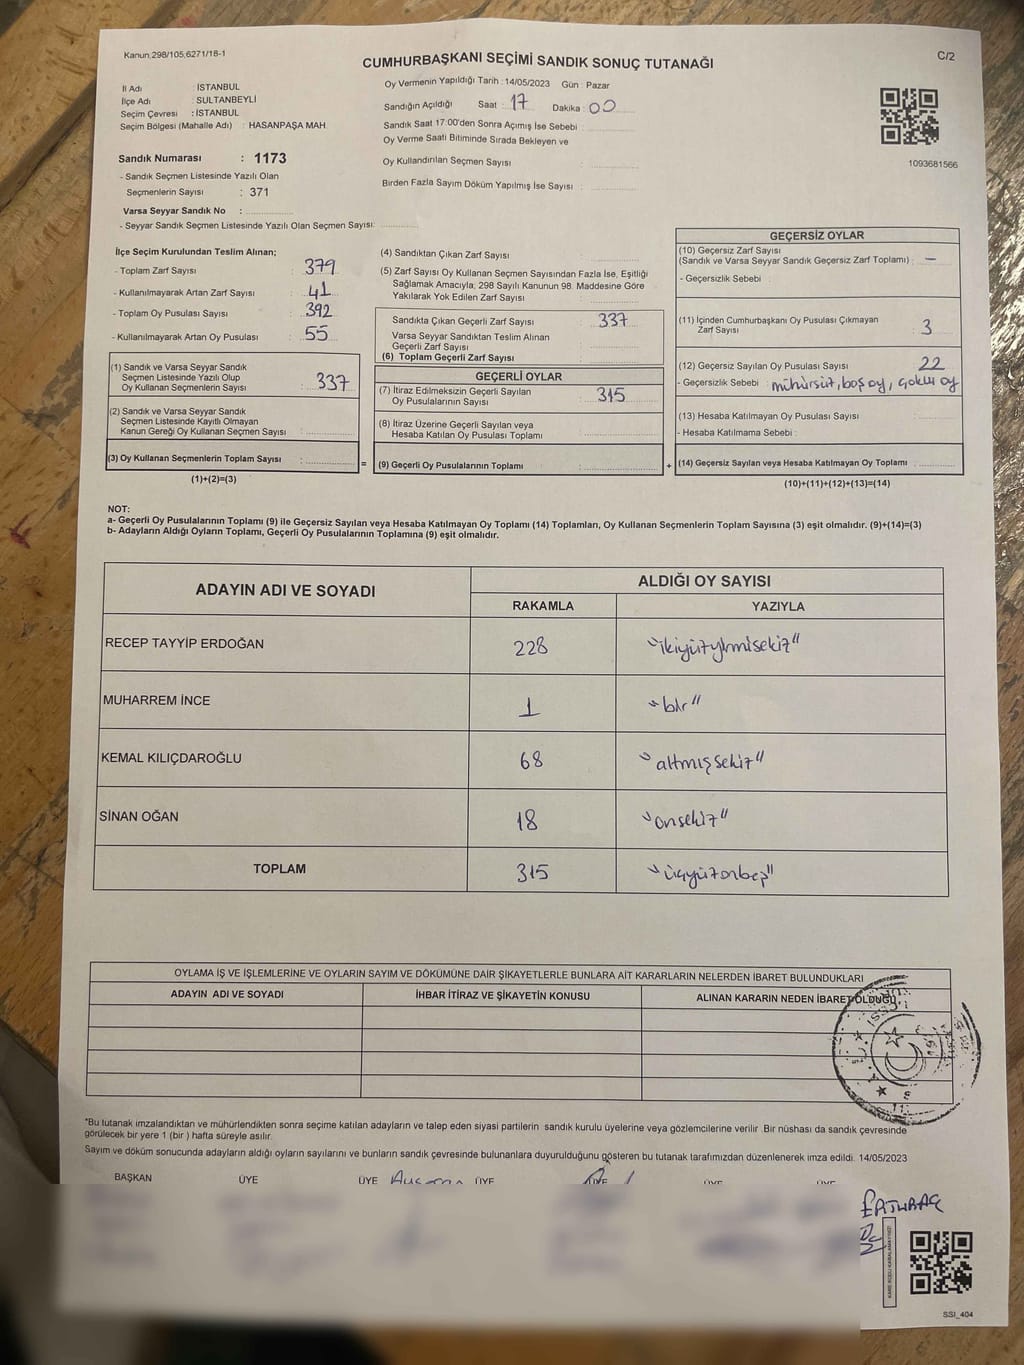 Kanun 298/105,6271/18-1
CUMHURBAŞKANI SEÇİMİ SANDIK SONUÇ TUTANAĞI
C/2
İl Adı : İSTANBUL
İlçe Adı : SULTANBEYLİ
Seçim Çevresi : İSTANBUL
Seçim Bölgesi (Mahalle Adı) : HASANPAŞA MAH.
Oy Vermenin Yapıldığı Tarih : 14/05/2023 Gün : Pazar
Sandığın Açıldığı Saat : 17 Dakika : 00
Sandık Saat 17:00'den Sonra Açımış İse Sebebi :
Oy Verme Saati Bitiminde Sırada Bekleyen ve
Oy Kullandırılan Seçmen Sayısı :
Birden Fazla Sayım Döküm Yapılmış İse Sayısı :
1093681566
Sandık Numarası : 1173
- Sandık Seçmen Listesinde Yazılı Olan
Seçmenlerin Sayısı : 371
Varsa Seyyar Sandık No :
- Seyyar Sandık Seçmen Listesinde Yazılı Olan Seçmen Sayısı:
İlçe Seçim Kurulundan Teslim Alınan;
- Toplam Zarf Sayısı : 379
- Kullanılmayarak Artan Zarf Sayısı : 41
- Toplam Oy Pusulası Sayısı : 392
- Kullanılmayarak Artan Oy Pusulası : 55
(1) Sandık ve Varsa Seyyar Sandık
Seçmen Listesinde Yazılı Olup
Oy Kullanan Seçmenlerin Sayısı : 337
(2) Sandık ve Varsa Seyyar Sandık
Seçmen Listesinde Kayıtlı Olmayan
Kanun Gereği Oy Kullanan Seçmen Sayısı :
(3) Oy Kullanan Seçmenlerin Toplam Sayısı :
(1)+(2)=(3)
(4) Sandıktan Çıkan Zarf Sayısı :
(5) Zarf Sayısı Oy Kullanan Seçmen Sayısından Fazla İse, Eşitliği
Sağlamak Amacıyla; 298 Sayılı Kanunun 98. Maddesine Göre
Yakılarak Yok Edilen Zarf Sayısı :
Sandıkta Çıkan Geçerli Zarf Sayısı : 337
Varsa Seyyar Sandıktan Teslim Alınan
Geçerli Zarf Sayısı :
(6) Toplam Geçerli Zarf Sayısı :
GEÇERLİ OYLAR
(7) İtiraz Edilmeksizin Geçerli Sayılan
Oy Pusulalarının Sayısı : 315
(8) İtiraz Üzerine Geçerli Sayılan veya
Hesaba Katılan Oy Pusulası Toplamı :
= (9) Geçerli Oy Pusulalarının Toplamı :
GEÇERSİZ OYLAR
(10) Geçersiz Zarf Sayısı
(Sandık ve Varsa Seyyar Sandık Geçersiz Zarf Toplamı) : –
- Geçersizlik Sebebi :
(11) İçinden Cumhurbaşkanı Oy Pusulası Çıkmayan
Zarf Sayısı : 3
(12) Geçersiz Sayılan Oy Pusulası Sayısı : 22
- Geçersizlik Sebebi : mühürsüz, boş oy, çoklu oy
(13) Hesaba Katılmayan Oy Pusulası Sayısı :
- Hesaba Katılmama Sebebi :
+ (14) Geçersiz Sayılan veya Hesaba Katılmayan Oy Toplamı :
(10)+(11)+(12)+(13)=(14)
NOT:
a- Geçerli Oy Pusulalarının Toplamı (9) ile Geçersiz Sayılan veya Hesaba Katılmayan Oy Toplamı (14) Toplamları, Oy Kullanan Seçmenlerin Toplam Sayısına (3) eşit olmalıdır. (9)+(14)=(3)
b- Adayların Aldığı Oyların Toplamı, Geçerli Oy Pusulalarının Toplamına (9) eşit olmalıdır.
ADAYIN ADI VE SOYADI
ALDIĞI OY SAYISI
RAKAMLA YAZIYLA
RECEP TAYYİP ERDOĞAN 228 "ikiyüzyirmisekiz"
MUHARREM İNCE 1 "bir"
KEMAL KILIÇDAROĞLU 68 "altmışsekiz"
SİNAN OĞAN 18 "onsekiz"
TOPLAM 315 "üçyüzonbeş"
OYLAMA İŞ VE İŞLEMLERİNE VE OYLARIN SAYIM VE DÖKÜMÜNE DAİR ŞİKAYETLERLE BUNLARA AİT KARARLARIN NELERDEN İBARET BULUNDUKLARI
ADAYIN ADI VE SOYADI
İHBAR İTİRAZ VE ŞİKAYETİN KONUSU
ALINAN KARARIN NEDEN İBARET OLDUĞU
*Bu tutanak imzalandıktan ve mühürlendikten sonra seçime katılan adayların ve talep eden siyasi partilerin sandık kurulu üyelerine veya gözlemcilerine verilir .Bir nüshası da sandık çevresinde
görülecek bir yere 1 (bir ) hafta süreyle asılır.
Sayım ve döküm sonucunda adayların aldığı oyların sayılarını ve bunların sandık çevresinde bulunanlara duyurulduğunu gösteren bu tutanak tarafımızdan düzenlenerek imza edildi. 14/05/2023
BAŞKAN ÜYE ÜYE ÜYE ÜYE ÜYE ÜYE
SSI_404